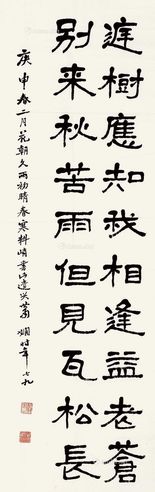 庭樹應知我相逢益老蒼
別来秋苦雨但見瓦松長
庚申春二月花朝久雨初晴春寒料峭書
時年七九